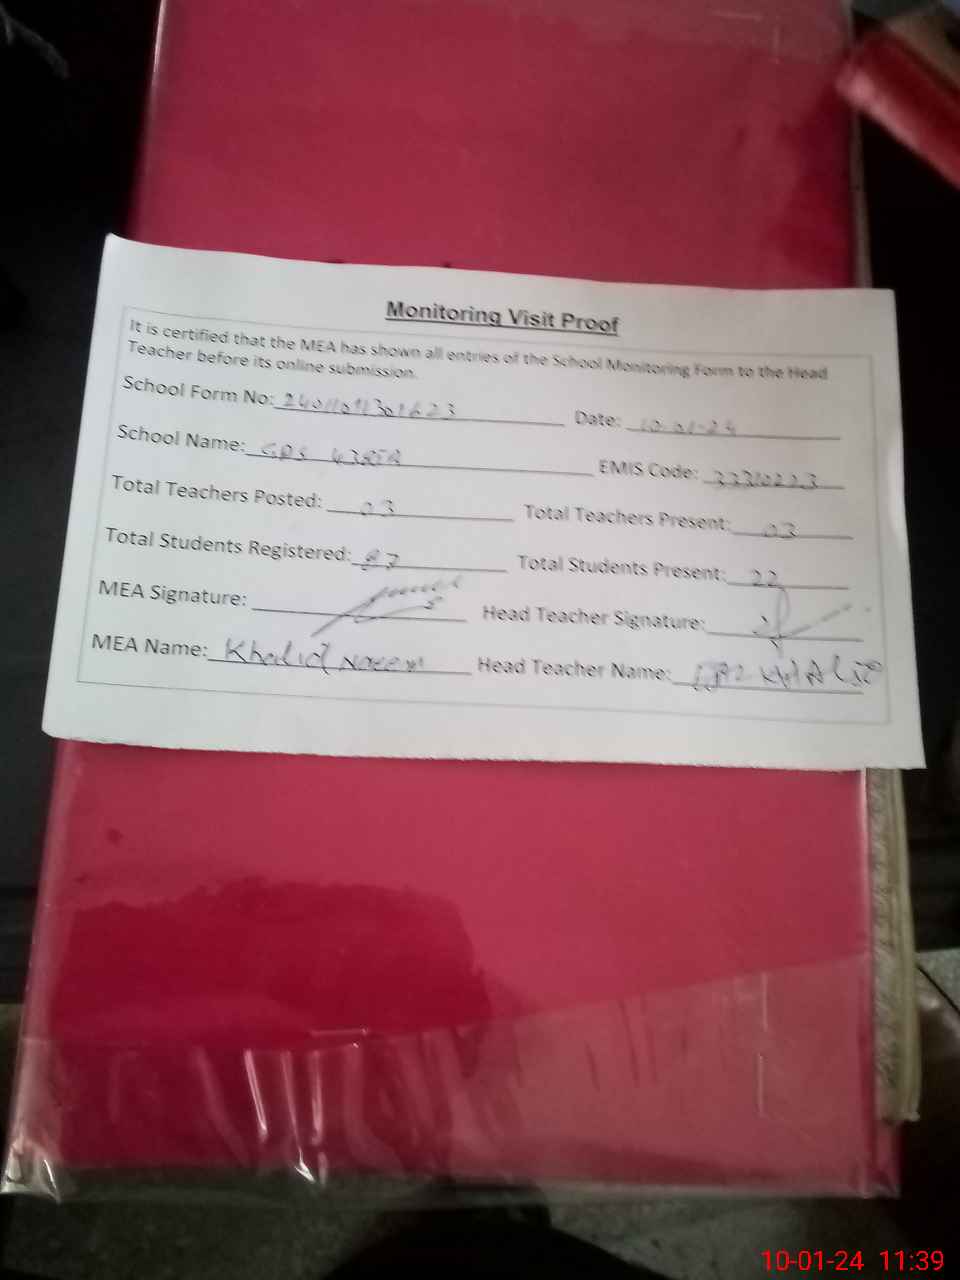 Monitoring Visit Proof
It is certified that the MEA has shown all entries of the School Monitoring Form to the Head
Teacher before its online submission.
School Form No: Date: 10-01-24
School Name: GPS EMIS Code: 33310223
Total Teachers Posted: 03 Total Teachers Present: 03
Total Students Registered: 87 Total Students Present: 22
MEA Signature: Head Teacher Signature:
MEA Name: Khalid Naeem Head Teacher Name:
10-01-24 11:39